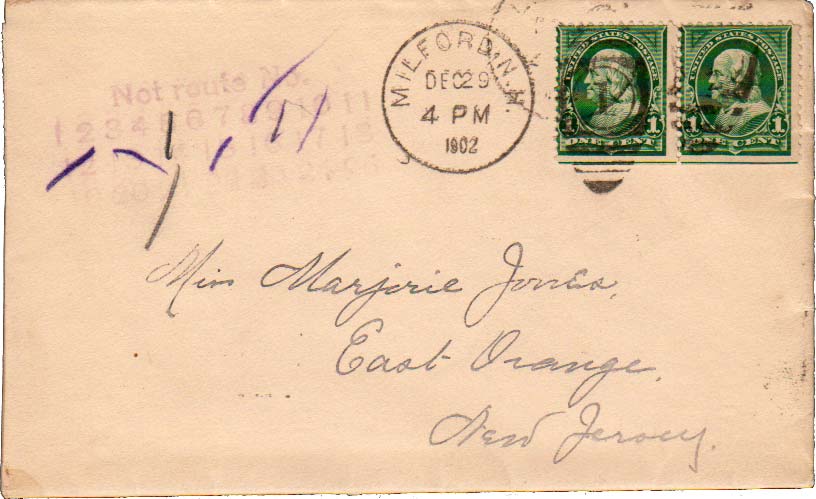 MILFORD, N.H.
DEC 29
4 PM
1902
UNITED STATES POSTAGE
1 1
ONE CENT
UNITED STATES POSTAGE
1 1
ONE CENT
Not route No.
1 2 3 4 5 6 7 8 9 10 11
Miss Marjorie Jones,
East Orange,
New Jersey.